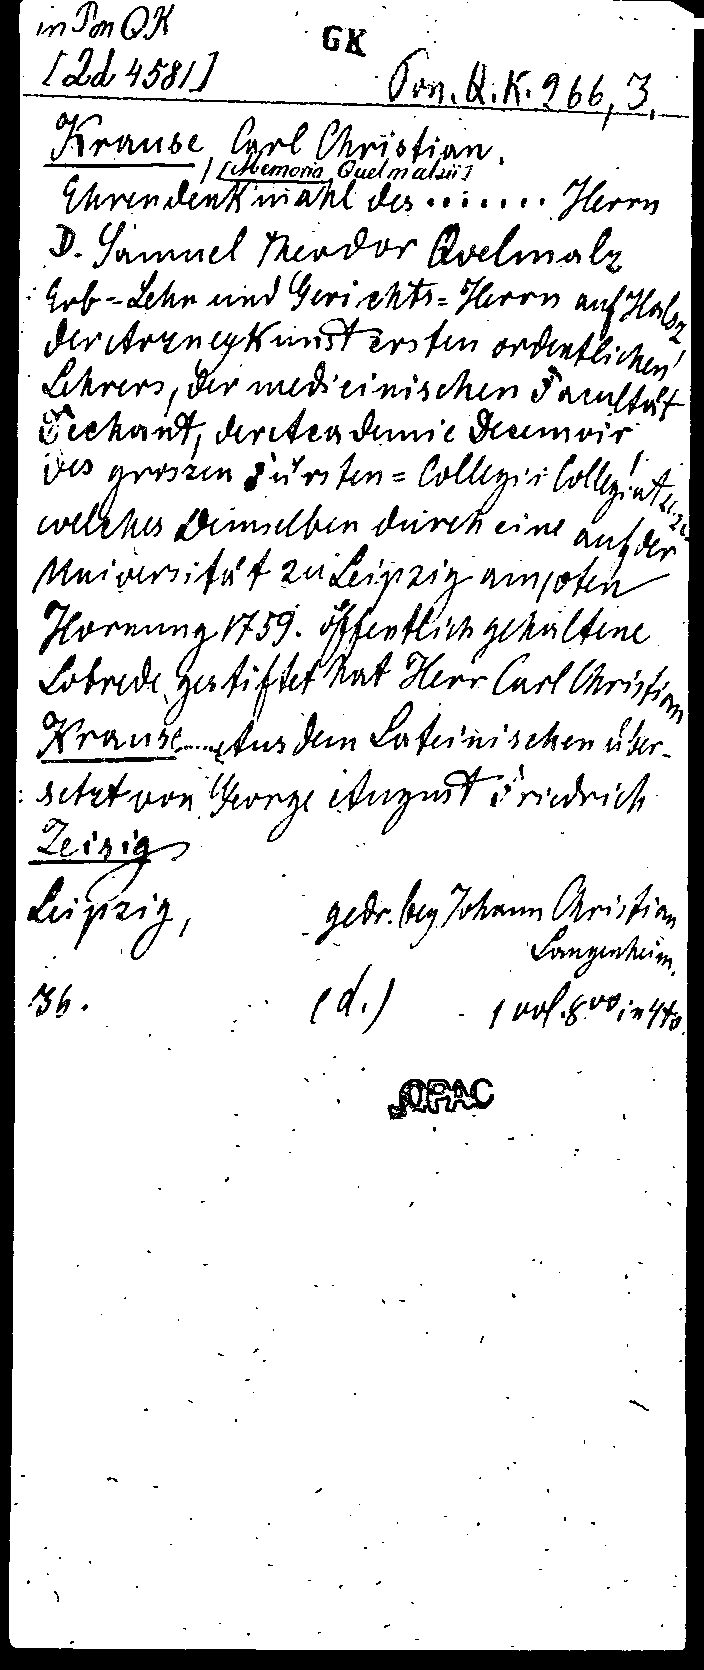 in Pon QK
GK
[2d 4581]
Pon. Q.K. 266, 3.
Krause, Carl Christian.
[Memoria Quelmalzii]
Ehrendenkmahl des ...... Herrn
D. Samuel Theodor Qvelmalz
Erb-Lehn und Gerichts-Herrn auf
der Arzneykunst ersten ordentlichen
Lehrers, der medicinischen Facultät
Dechant, der Academie Decemvir,
des grossen Fürsten-Collegii Collegiat
welches Demselben durch eine auf der
Universität zu Leipzig am 10ten
Hornung 1759. öffentlich gehaltene
Lobrede gestiftet hat Herr Carl Christian
Krause..... Aus dem Lateinischen über-
setzt von George August Friedrich
Zeisig
Leipzig, gedr. bey Johann Christian
Langenheim.
36. (d.) 1 vol. 8vo in 4to.
OPAC